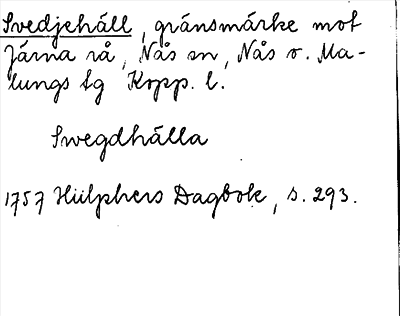 Svedjehäll, gränsmärke mot
Järna rå, Nås sn, Nås o. Ma-
lungs tg Kopp. l.
Swegdhälla
1757 Hülphers Dagbok, s. 293.